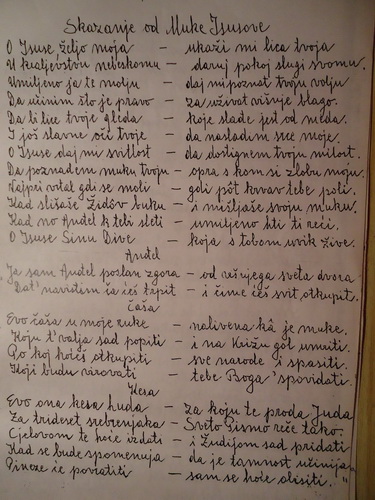 Skazanje od Muke Isusove
O Isuse, željo moja — ukaži mi lica tvoja
U kraljevstvu nebeskomu — daruj pokoj slugi svomu.
Umiljeno ja te molju — daj mi poznat tvoju volju
Da učinim što je pravo — za uživat višnje blago.
Da ti lice tvoje gleda — koje slađe jest od meda.
I još slavne oči tvoje — da nasladim srce moje.
O Isuse daj mi svitlost — da dostignem tvoju milost.
Da poznadem muku tvoju — opra s kom si zlobu moju.
Najpri vrtal gdi se moli — gdi pot krvav tebe poli.
Kad slišaše Židov buku — i mišljaše svoju muku.
Kad no Anđel k tebi sleti — umiljeno hti ti reći.
O Isuse Sinu Dive — koja s tobom uvik žive.
Anđel
Ja sam Anđel poslan zgora — od višnjega sveta dvora
Dat' navistim ća ćeš trpit — i čime ćeš svit otkupit.
Čaša
Evo čaša u moje ruke — nalivena kâ je muke.
Koju t'valja sad popiti — i na Križu gol umriti.
Po koj hoćeš otkupiti — sve narode i spasiti.
Koji budu virovati — tebe Boga 'spovidati.
Kesa
Evo ona kesa huda — za koju te proda Juda
Za trideset srebrenjaka — Sveto Pismo reče tako.
Cjelovom te hoće izdati — i Žudijom sad pridati.
Kad se bude spomenuja — da je tamnost učinija
Pineze će povratiti — sam se hoće obisiti."